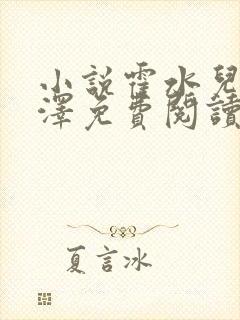 小說霍水兒
澤免費閱讀
夏言冰